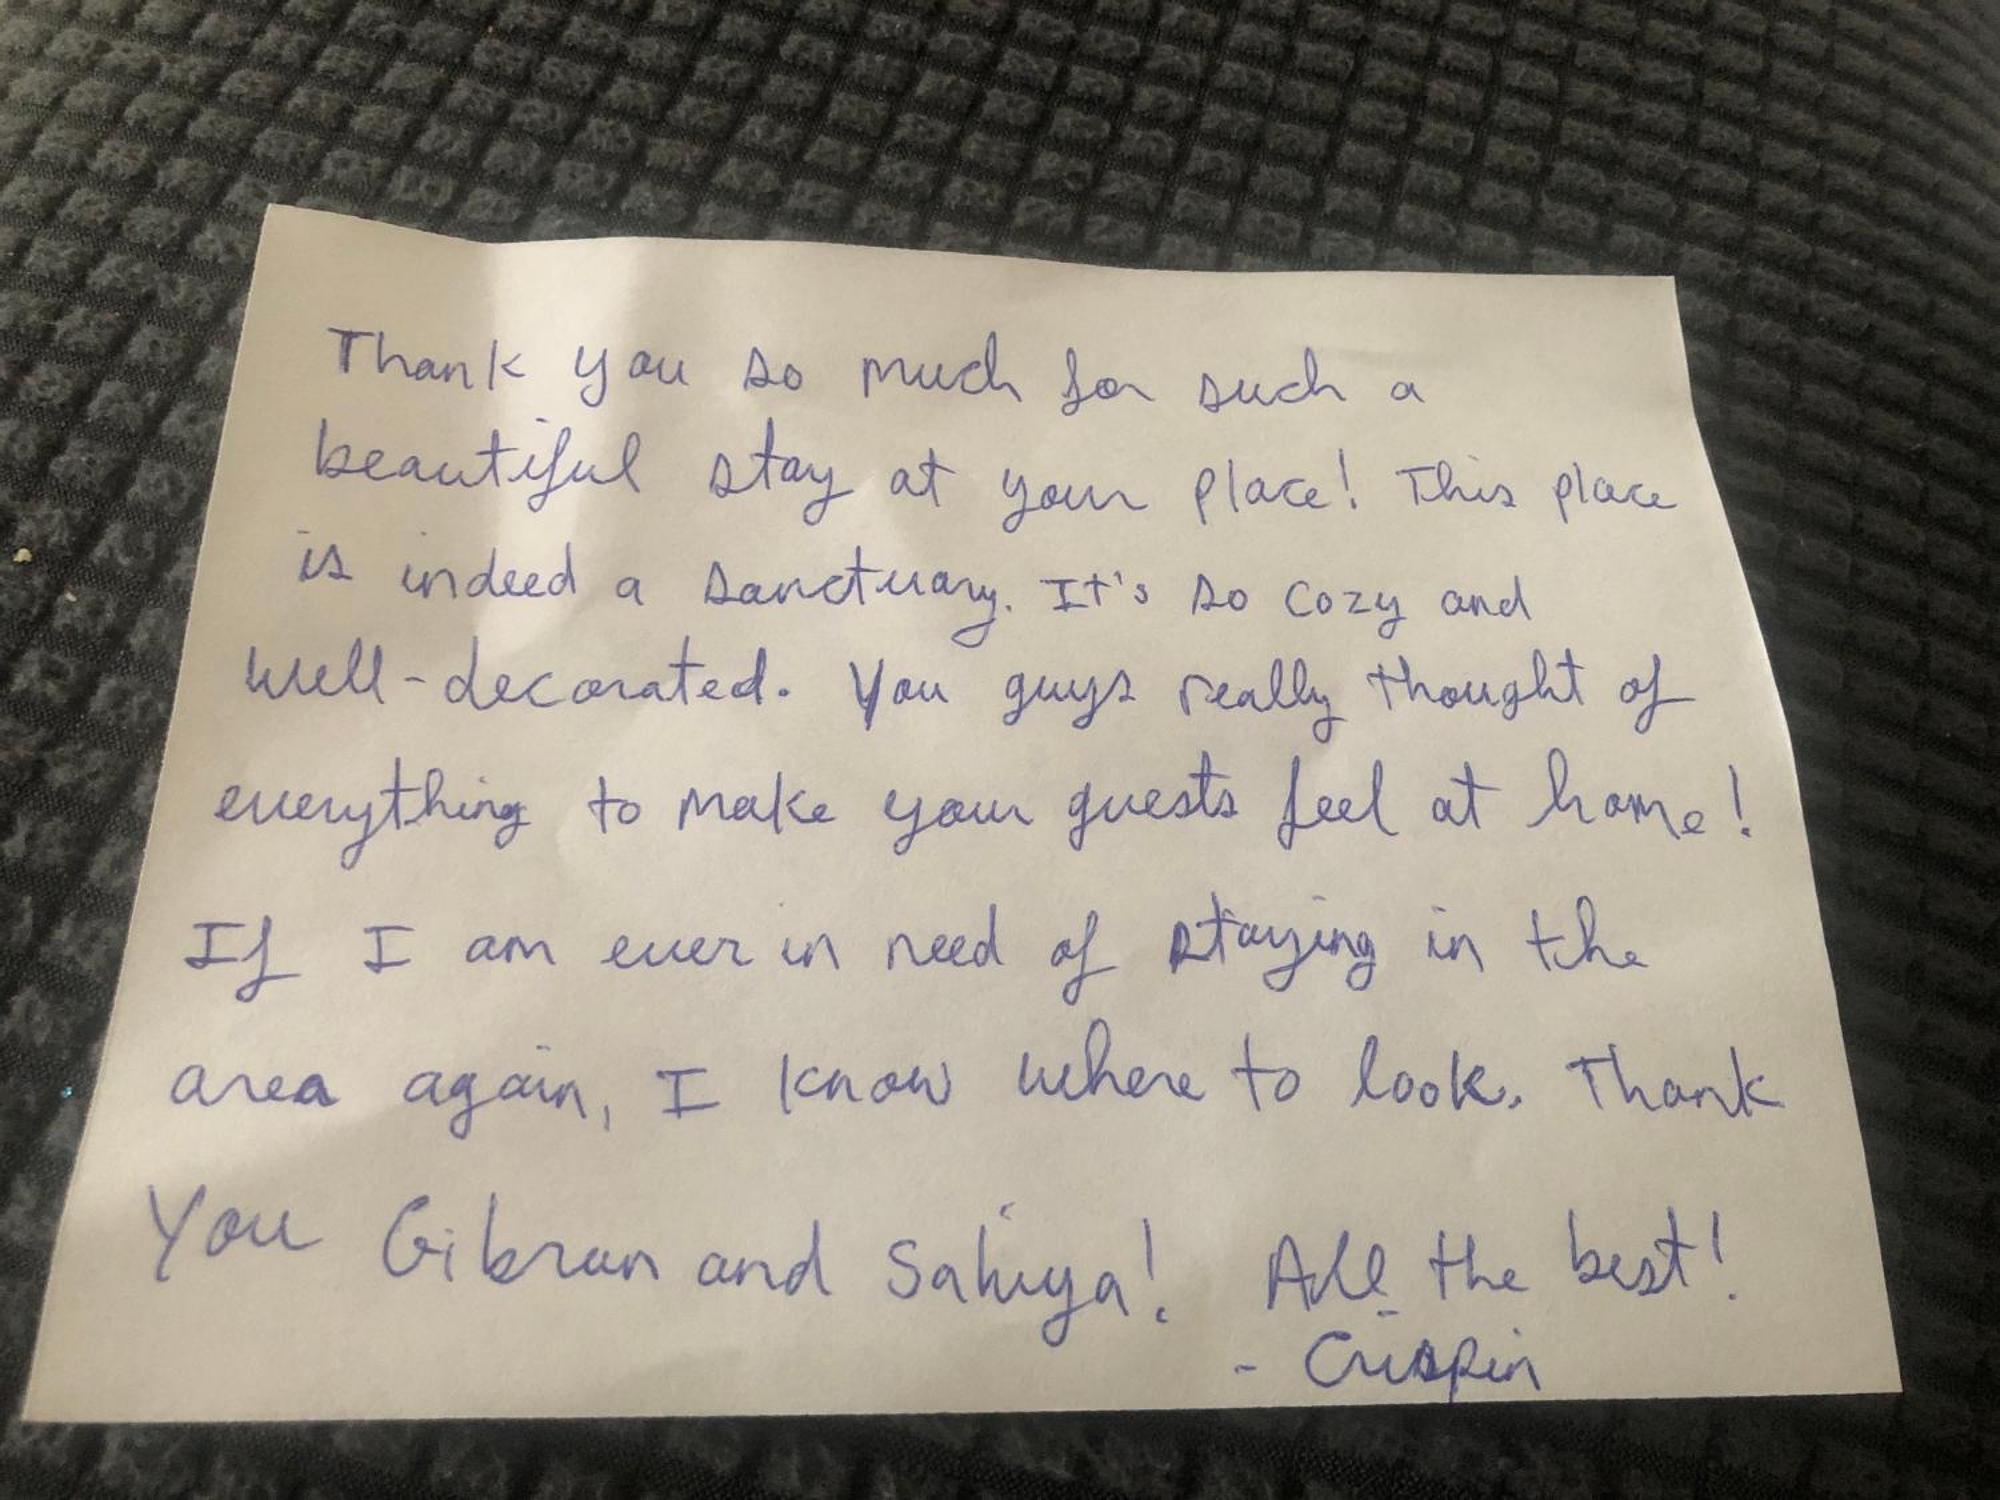 Thank you so much for such a
beautiful stay at your place! This place
is indeed a sanctuary. It's so cozy and
well-decorated. You guys really thought of
everything to make your guests feel at home!
If I am ever in need of staying in the
area again, I know where to look. Thank
You Gibran and Sahiya! All the best!
- Crispin